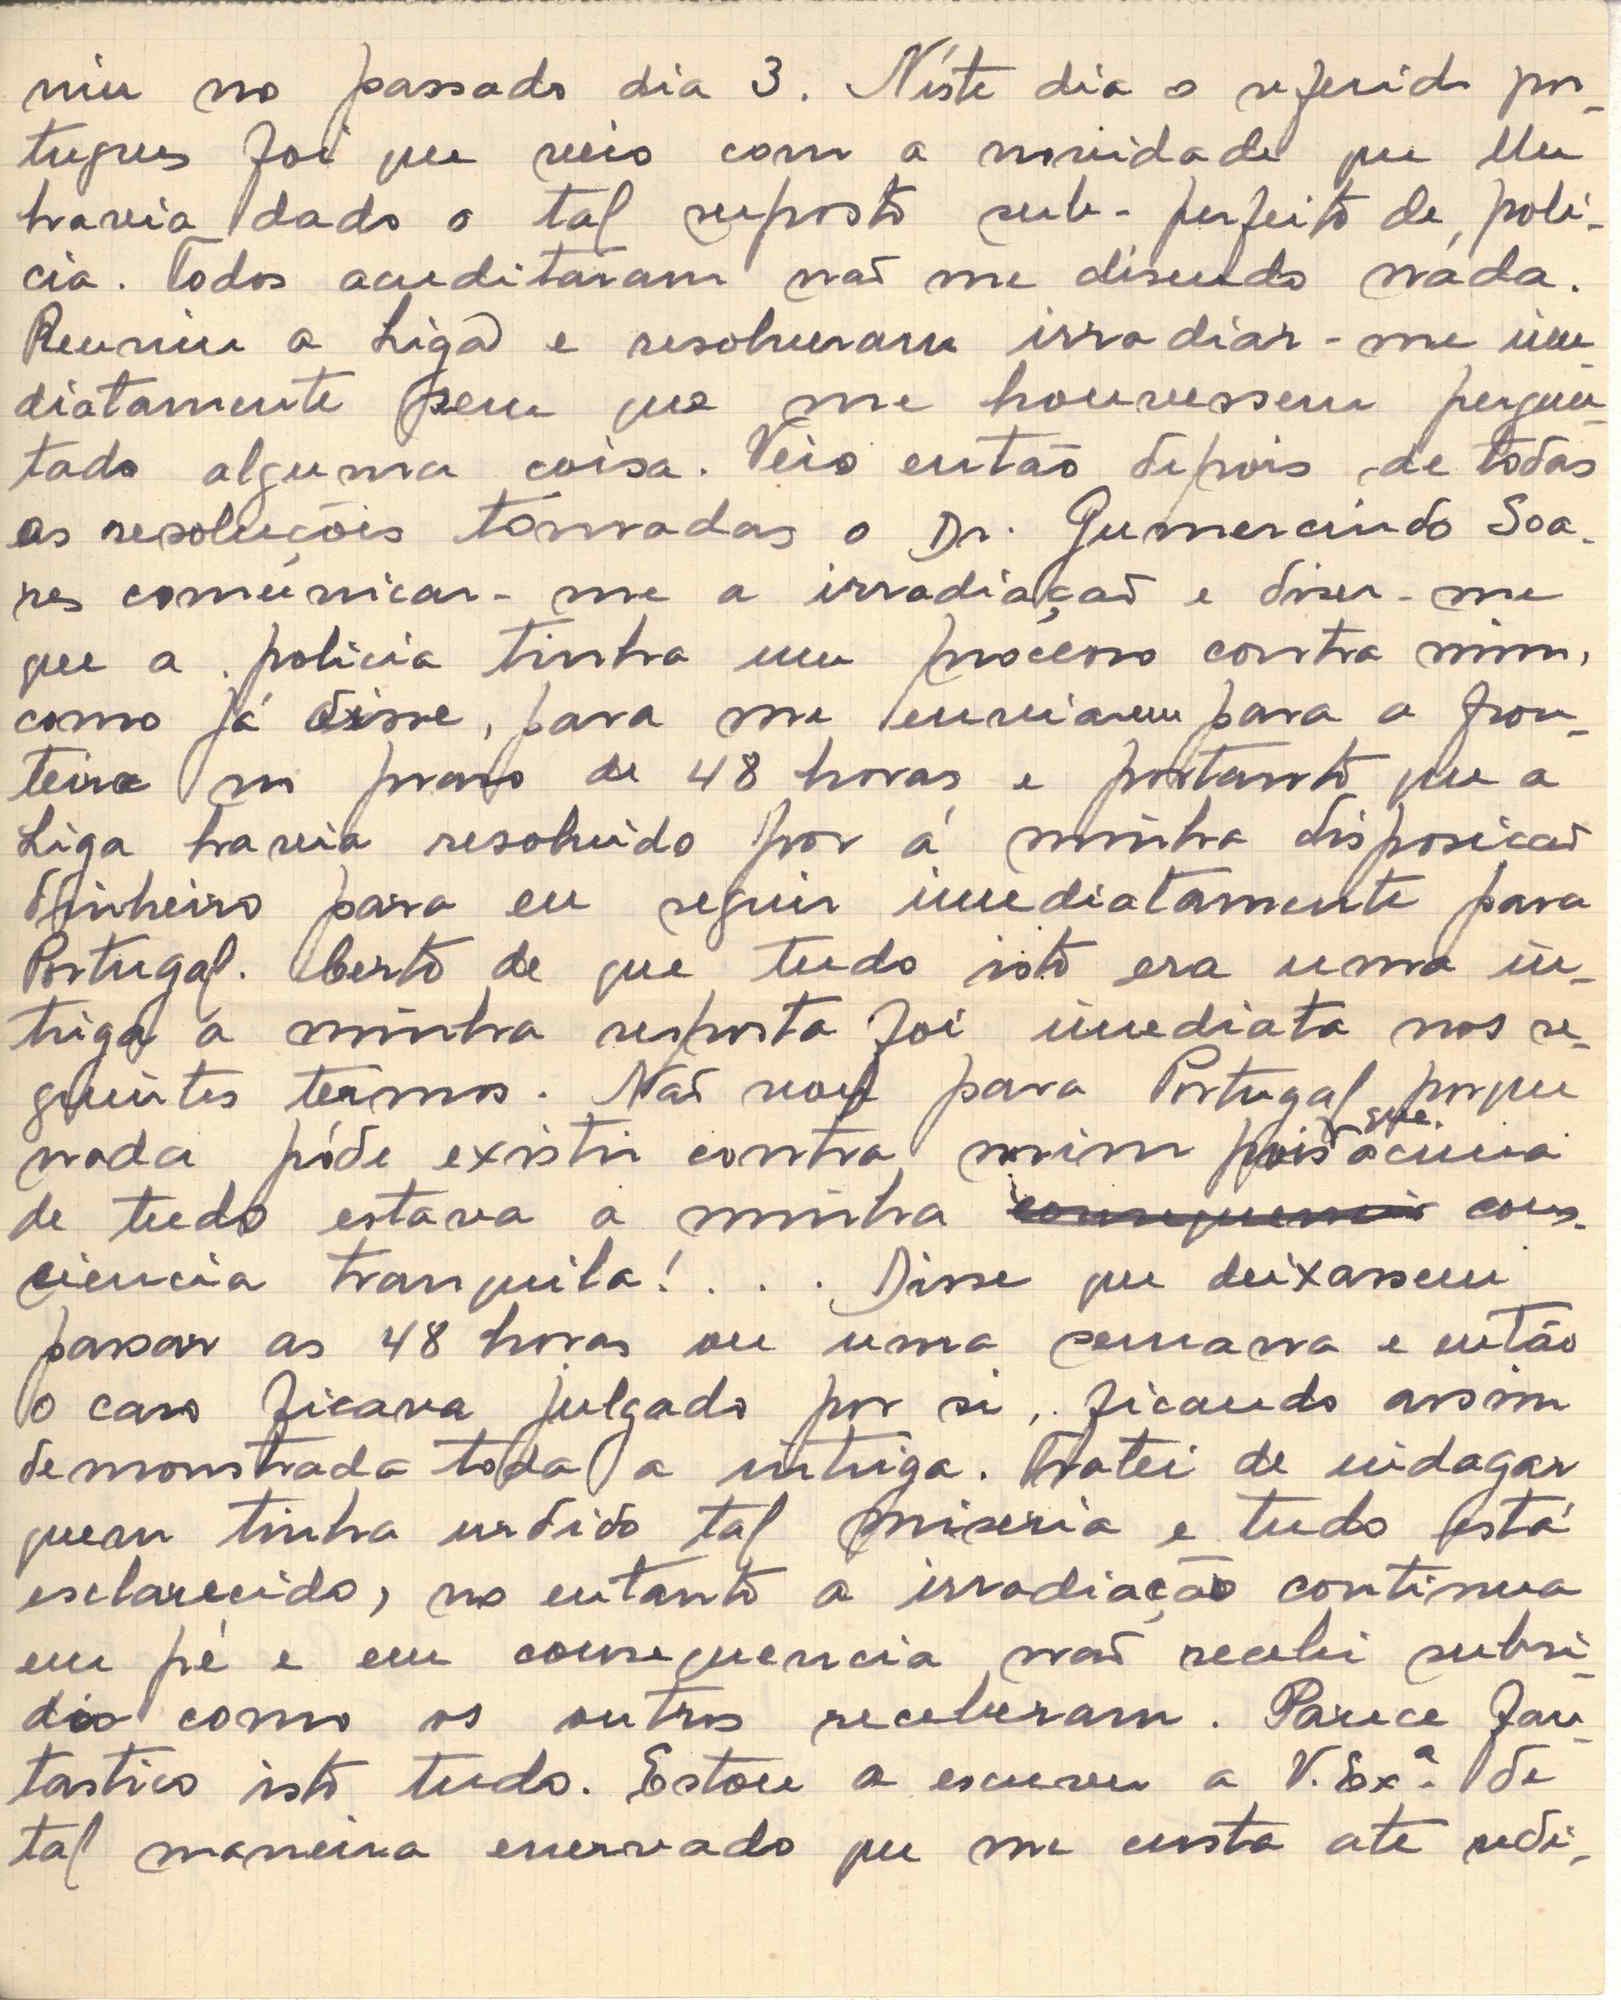 niu no passado dia 3. Néste dia o referido por-
tugues foi que veio com a novidade que lhe
havia dado o tal suposto sub-perfeito de, poli-
cia. Todos acreditáram naõ me disendo náda.
Reuniu a Liga e resolveram irradiar-me ime-
diatamente sem que me houvessem pergun-
tado alguma coisa. Veio então depois de todas
as resoluçõis tomadas o Dr. Gumercindo Soa-
res comúnicar-me a irradiaçaõ e diser-me
que a policia tinha um procésso contra mim,
como já disse, para me enviarem para a fron-
teira no praso de 48 horas e portanto que a
Liga havia resolvido por á minha disposicaõ
dinheiro para eu seguir imediatamente para
Portugal. Certo de que tudo isto era uma in-
triga a minha resposta foi imediata nos se-
guintes termos. Naõ vou para Portugal porque
nada póde existir contra mim pois que acima
de tudo estava a minha consequencia cons-
ciencia tranquila! . . . Disse que deixassem
passar as 48 horas ou uma semana e então
o caso ficava julgado por si, ficando assim
demonstrada toda a intriga. Tratei de indagar
quem tinha urdido tal miseria e tudo está
esclarecido, no entanto a irradiação continua
em pé e em consequencia naõ recebi subsi-
dio como os outros receberam. Parece fan-
tastico isto tudo. Estou a escrever a V. Exª. de
tal maneira enervado que me custa ate redi-